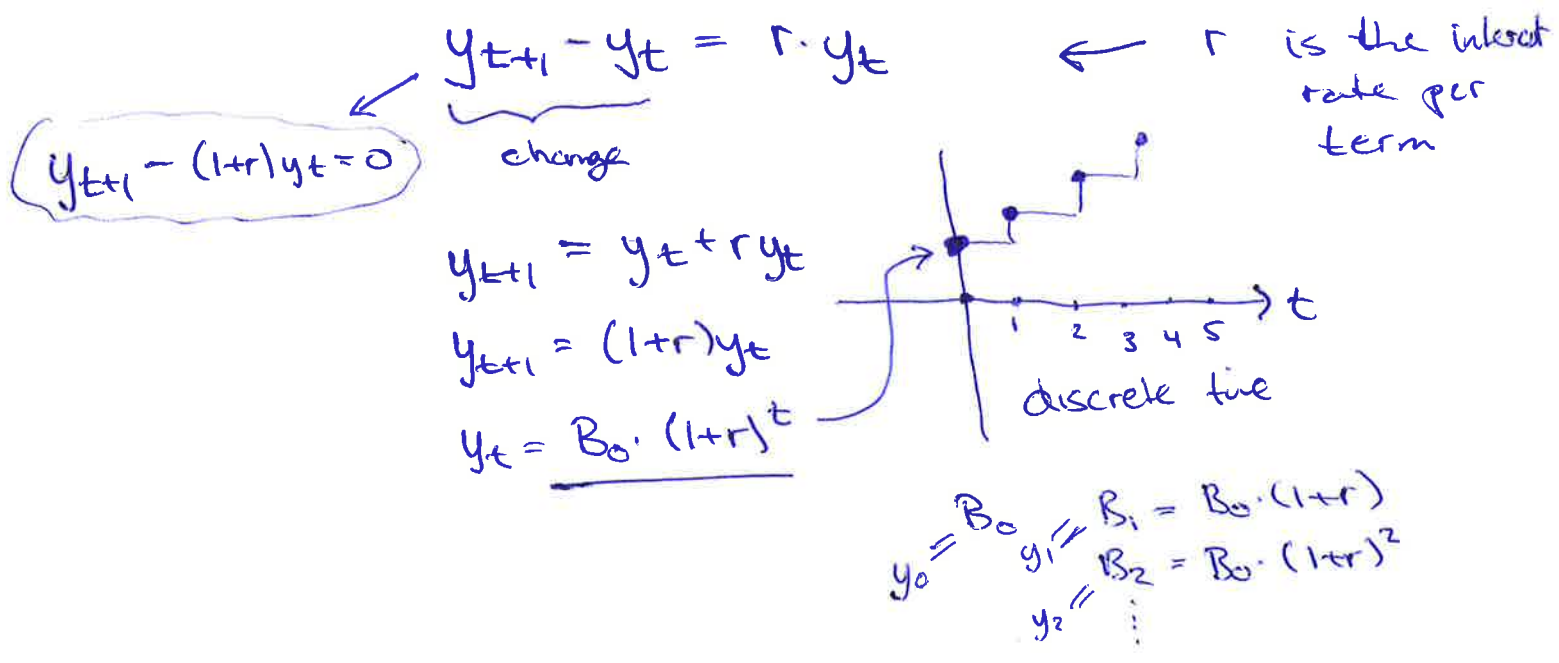 y_{t+1} - y_t = r · y_t ← r is the interest
rate per
term
change
y_{t+1} - (1+r) y_t = 0
y_{t+1} = y_t + r y_t
y_{t+1} = (1+r) y_t
y_t = B_0 · (1+r)^t
t
1 2 3 4 5
discrete time
y_0 = B_0
y_1 = B_1 = B_0 · (1+r)
y_2 = B_2 = B_0 · (1+r)^2
⋮